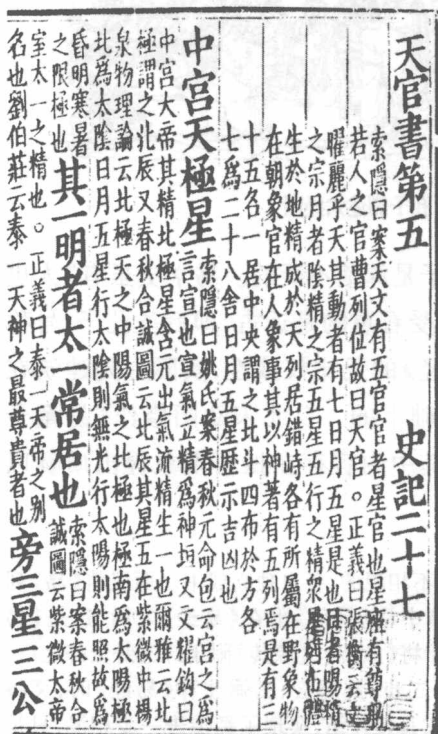 天官書第五 史記二十七
索隱曰案天文有五官官者星官也星座有尊卑
若人之官曹列位故曰天官。正義曰張衡云文
曜麗乎天其動者有七日月五星是也日者陽精
之宗月者陰精之宗五星五行之精衆星列布體
生於地精成於天列居錯峙各有所屬在野象物
在朝象官在人象事其以神著有五列焉是有三
十五名一居中央謂之北斗四布於方各
七爲二十八舍日月五星歷示吉凶也
中宮天極星
索隱曰姚氏案春秋元命包云宮之爲
言宣也宣氣立精爲神垣又文耀鈎曰
中宮大帝其精北極星含元出氣流精生一也爾雅云北
極謂之北辰又春秋合誠圖云北辰其星五在紫微中楊
泉物理論云北極天之中陽氣之北極也極南爲太陽極
北爲太陰日月五星行太陰則無光行太陽則能照故爲
昏明寒暑
之限極也
其一明者太一常居也
索隱曰案春秋合
誠圖云紫微太帝
室太一之精也。正義曰泰一天帝之别
名也劉伯莊云泰一天神之最尊貴者也
旁三星三公